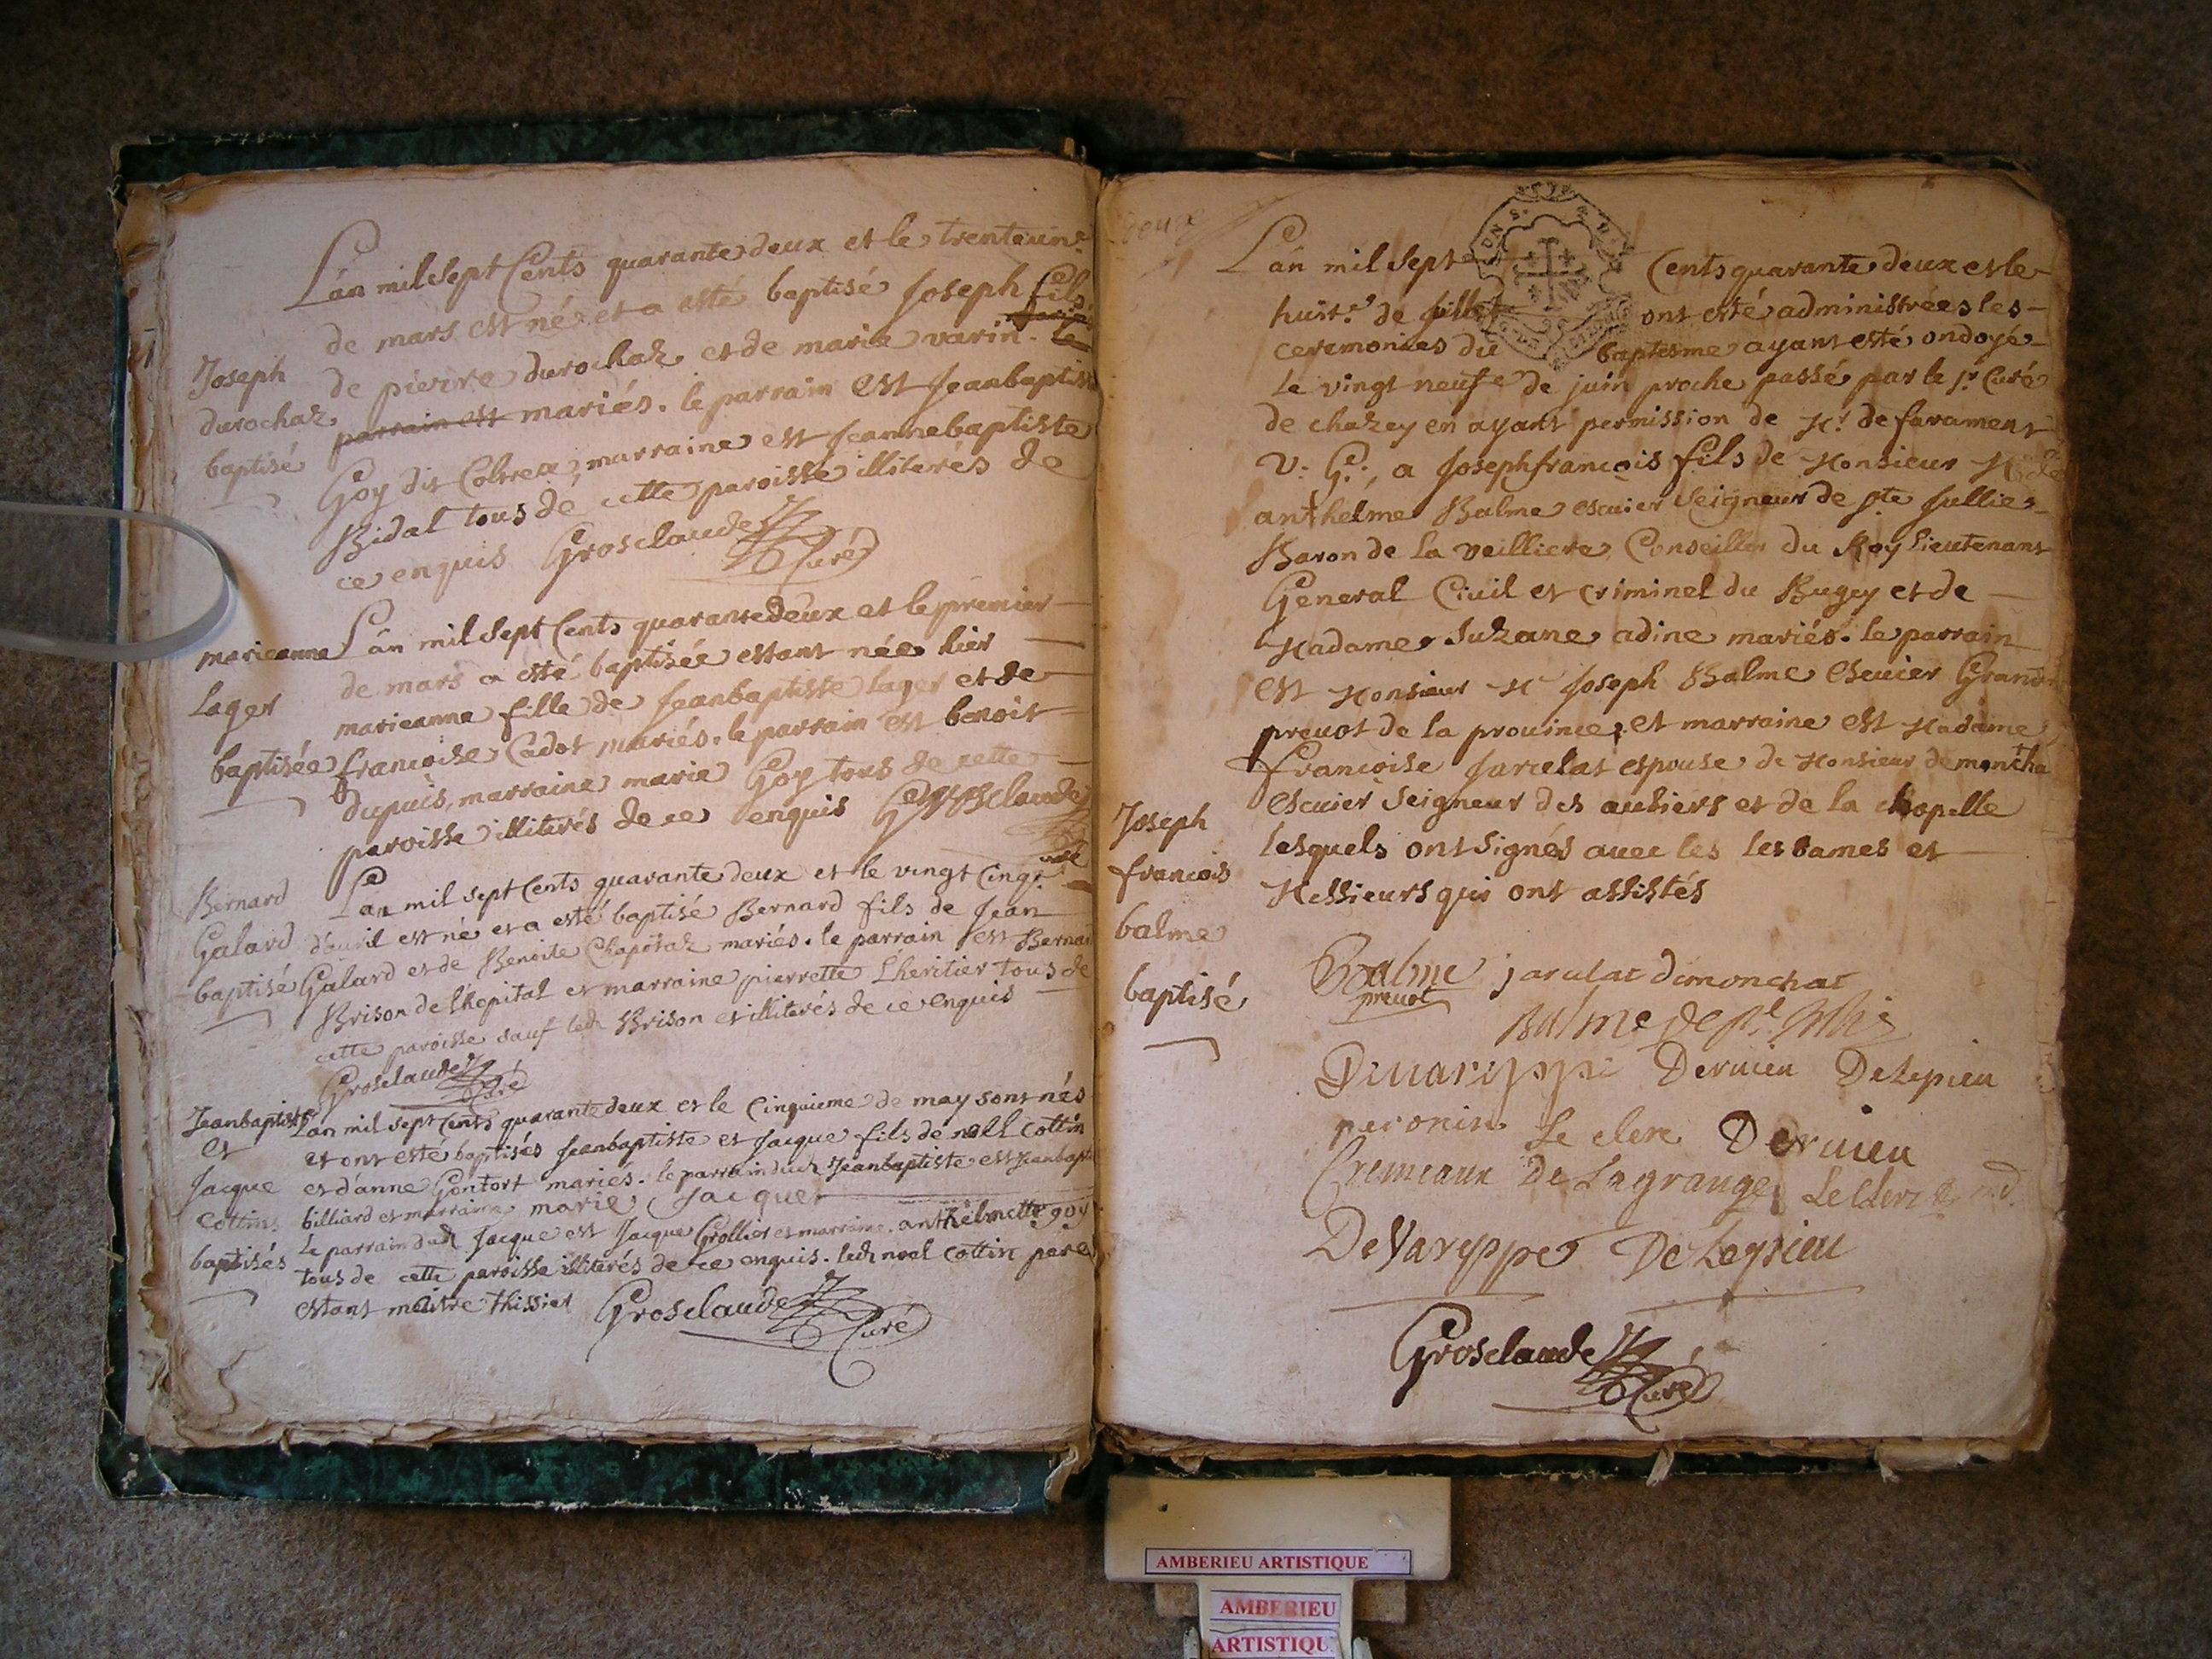 Joseph
durochaz
baptisé
L'an mil sept Cents quarante deux et le trenteun.e
de mars est né et a esté baptisé Joseph fils
de pierre durochaz et de marie varin. le
parrain est mariés. le parrain est Jeanbaptiste
Goy dit Coltrex, marraine est Jeannebaptiste
Bidal tous de cette paroisse illiterés de
ce enquis Grosclaude
Curé
marieanne
Lager
baptisée
L'an mil sept Cents quarantedeux et le premier
de mars a esté baptisée estant née hier
marieanne fille de Jeanbaptiste lager et de
francoise Cadot mariés. le parrain est benoit
dupuis, marraine marie Goy tous de cette
paroisse illiterés de ce enquis Grosclaude
curé
Bernard
Galard
baptisé
L'an mil sept Cents quarante deux et le vingt Cinq.e
d'auril est né et a esté baptisé Bernard fils de Jean
Galard et de Benoite Chapotaz mariés. le parrain est Bernard
Brison de l'hopital et marraine pierrette L'heritier tous de
cette paroisse sauf led. Brison et illiterés de ce enquis
Grosclaude
Curé
Jeanbaptiste
et
Jacque
Cottins
baptisés
L'an mil sept Cents quarante deux et le Cinquieme de may sont nés
et ont esté baptisés Jeanbaptiste et Jacque fils de noel Cottin
et d'anne Gontort mariés. le parrain dud. Jeanbaptiste est Jeanbapt
billiard et marraine marie Jacquer
le parrain dud. Jacque est Jacque Grollier et marraine anthelmette goy
tous de cette paroisse illiterés de ce enquis. led. noel Cottin pere
estant maitre thissier Grosclaude
Curé
deux
Joseph
francois
balme
baptisé
L'an mil sept Cents quarante deux et le
huit.e de Jillet ont esté administrées les
ceremonies du baptesme ayant esté ondoyé
le vingt neuf.e de juin proche passé par le sr Curé
de chazey en ayant permission de Mr de farament
V. G., a Joseph françois fils de Monsieur
anthelme Balme escuier Seigneur de ste Jullie
Baron de la veilliere Conseiller du Roy Lieutenant
General Ciuil et criminel du Bugey et de
Madame Suzane adine mariés. le parrain
est Monsieur Mr Joseph Balme Escuier Grand
preuot de la prouince, et marraine est Madame
françoise Jarcelat espouse de Monsieur de montcha
Escuier Seigneur des auhiers et de la chapelle
lesquels ont signés auec les les dames et
Messieurs qui ont assistés
Balme jarcelat demonchat
preuot
Balme de ste Julie
Deuareppe Deruieu Delepieu
peronin Le clerc Deruieu
Cremeaux De Lagrange Leclerc
DeVareppe De Leysieu
Grosclaude
Curé
AMBERIEU ARTISTIQUE
AMBERIEU
ARTISTIQU